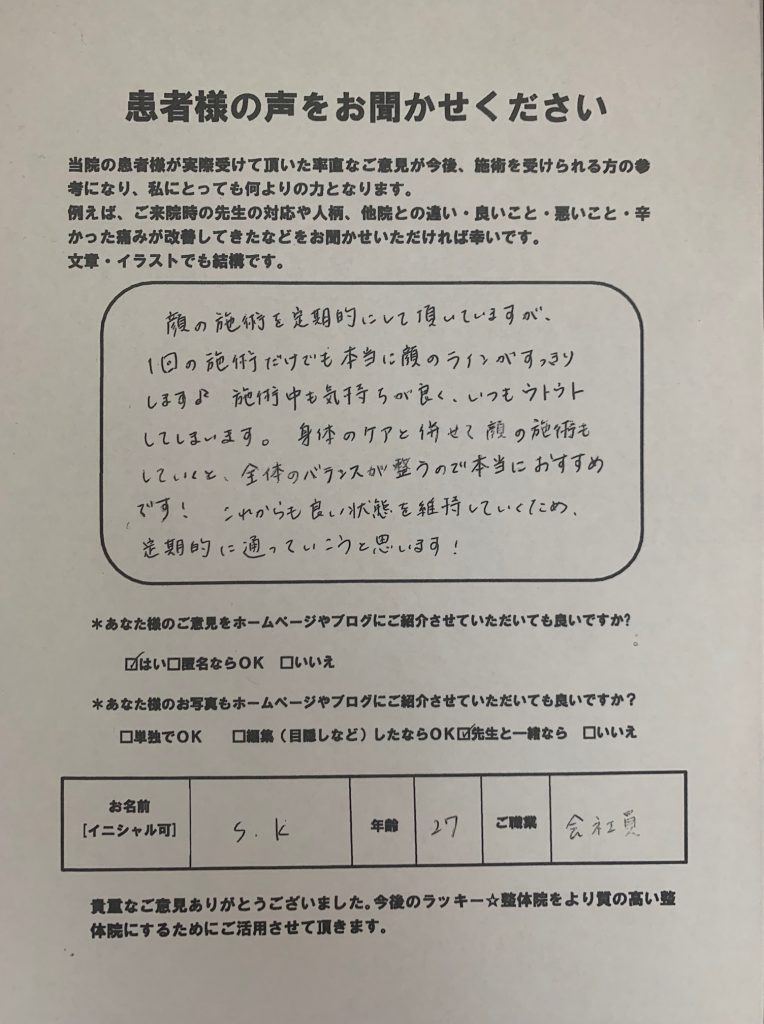 患者様の声をお聞かせください
当院の患者様が実際受けて頂いた率直なご意見が今後、施術を受けられる方の参
考になり、私にとっても何よりの力となります。
例えば、ご来院時の先生の対応や人柄、他院との違い・良いこと・悪いこと・辛
かった痛みが改善してきたなどをお聞かせいただければ幸いです。
文章・イラストでも結構です。
顔の施術を定期的にして頂いていますが、
1回の施術だけでも本当に顔のラインがすっきり
します♪ 施術中も気持ちが良く、いつもウトウト
してしまいます。 身体のケアと併せて顔の施術も
していくと、全体のバランスが整うので本当におすすめ
です! これからも良い状態を維持していくため、
定期的に通っていこうと思います!
＊あなた様のご意見をホームページやブログにご紹介させていただいても良いですか?
☑はい□匿名ならOK □いいえ
＊あなた様のお写真もホームページやブログにご紹介させていただいても良いですか？
□単独でOK □編集（目隠しなど）したならOK☑先生と一緒なら □いいえ
お名前
[イニシャル可] S.K 年齢 27 ご職業 会社員
貴重なご意見ありがとうございました。今後のラッキー☆整体院をより質の高い整
体院にするためにご活用させて頂きます。